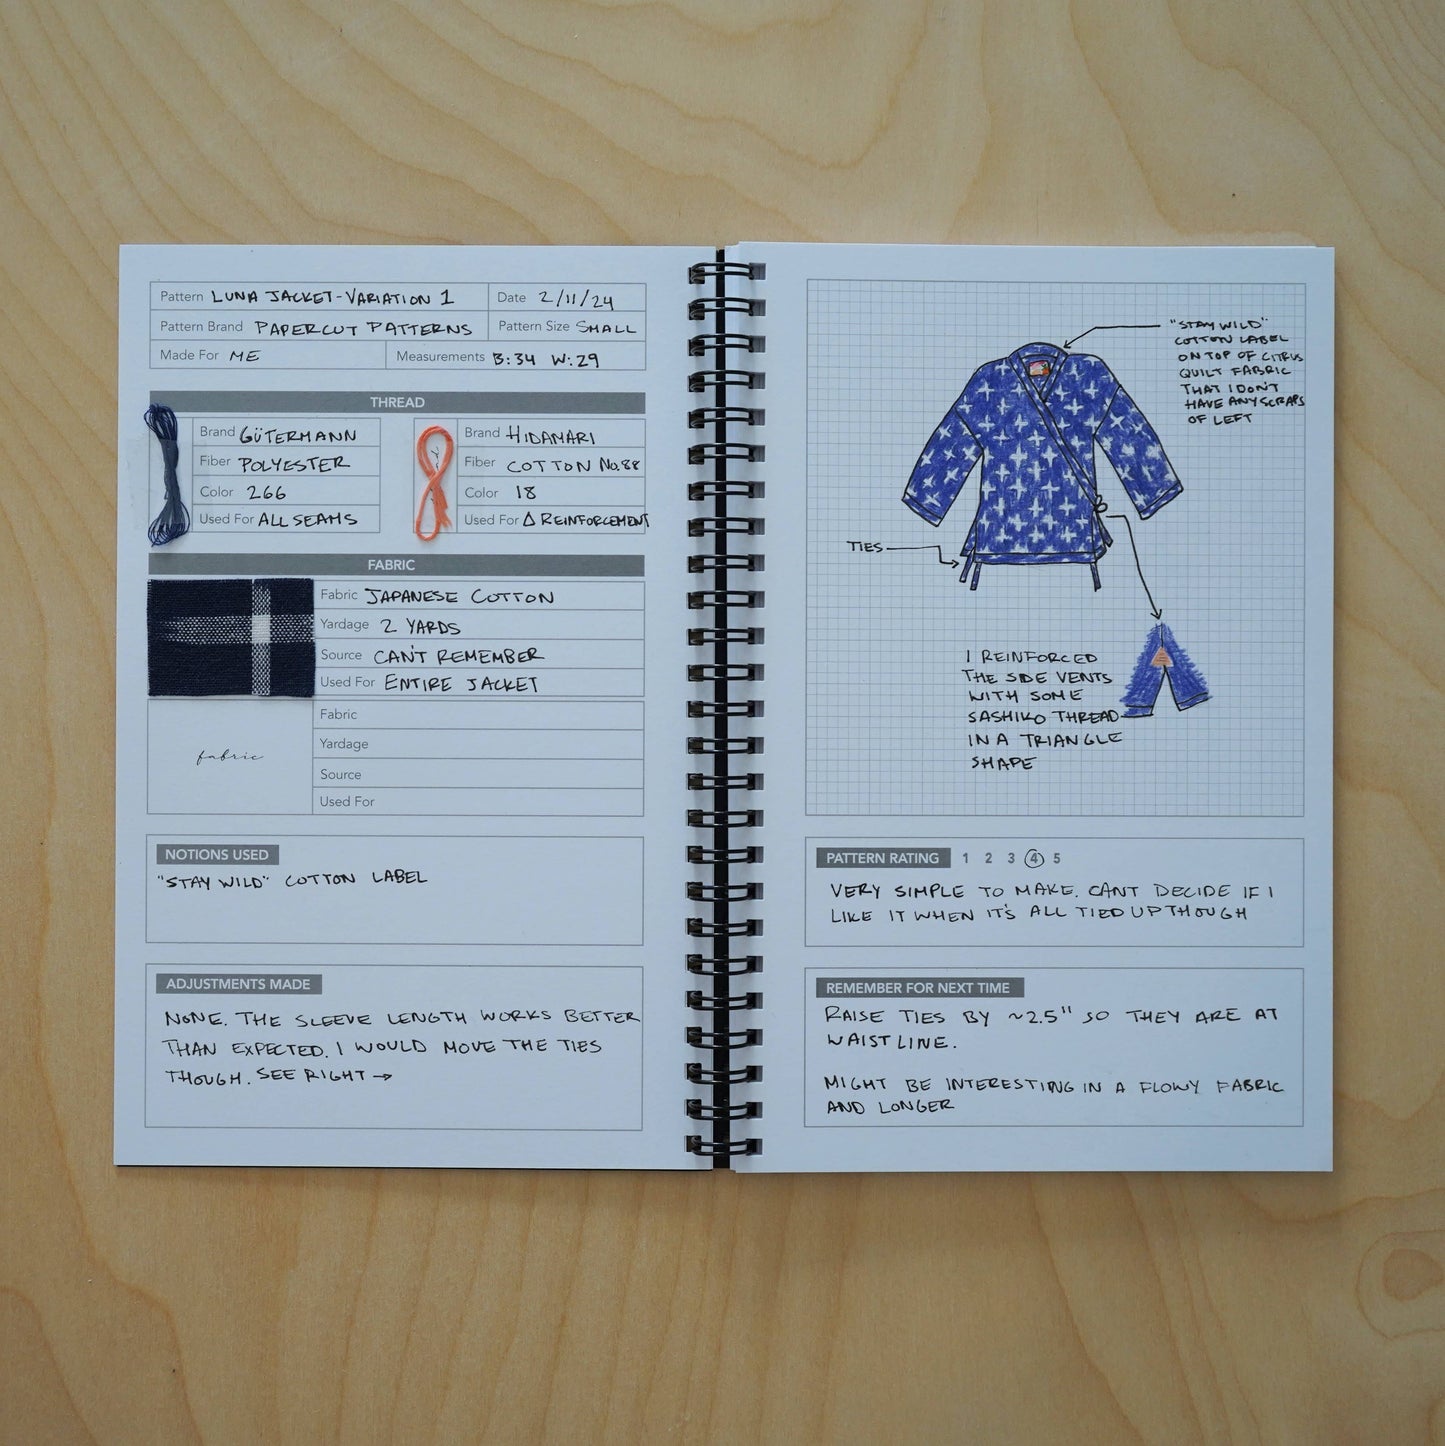 Pattern LUNA JACKET-VARIATION 1 Date 2/11/24
Pattern Brand PAPERCUT PATTERNS Pattern Size SMALL
Made For ME Measurements B:34 W:29
THREAD
Brand GÜTERMANN
Fiber POLYESTER
Color 266
Used For ALL SEAMS
Brand HIDAMARI
Fiber COTTON NO.88
Color 18
Used For Δ REINFORCEMENT
FABRIC
Fabric JAPANESE COTTON
Yardage 2 YARDS
Source CAN'T REMEMBER
Used For ENTIRE JACKET
fabric
Fabric
Yardage
Source
Used For
NOTIONS USED
"STAY WILD" COTTON LABEL
ADJUSTMENTS MADE
NONE. THE SLEEVE LENGTH WORKS BETTER
THAN EXPECTED. I WOULD MOVE THE TIES
THOUGH. SEE RIGHT →
"STAY WILD"
COTTON LABEL
ON TOP OF CITRUS
QUILT FABRIC
THAT I DON'T
HAVE ANY SCRAPS
OF LEFT
TIES
I REINFORCED
THE SIDE VENTS
WITH SOME
SASHIKO THREAD
IN A TRIANGLE
SHAPE
PATTERN RATING 1 2 3 4 5
VERY SIMPLE TO MAKE. CANT DECIDE IF I
LIKE IT WHEN IT'S ALL TIED UP THOUGH
REMEMBER FOR NEXT TIME
RAISE TIES BY ~2.5" SO THEY ARE AT
WAISTLINE.
MIGHT BE INTERESTING IN A FLOWY FABRIC
AND LONGER